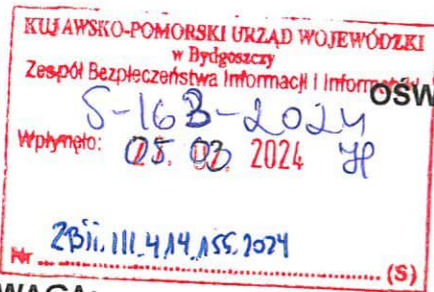 KUJAWSKO-POMORSKI URZĄD WOJEWÓDZKI
w Bydgoszczy
Zespół Bezpieczeństwa Informacji i
OŚW
S-163-2024
Wpłynęło: 05. 03 2024
ZBiI.III.414.155.2024
Nr (S)
WAGA